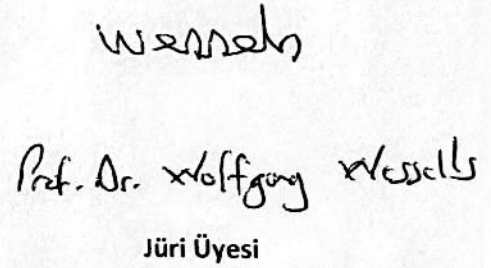 Wessels
Prof. Dr. Wolfgang Wessells
Jüri Üyesi